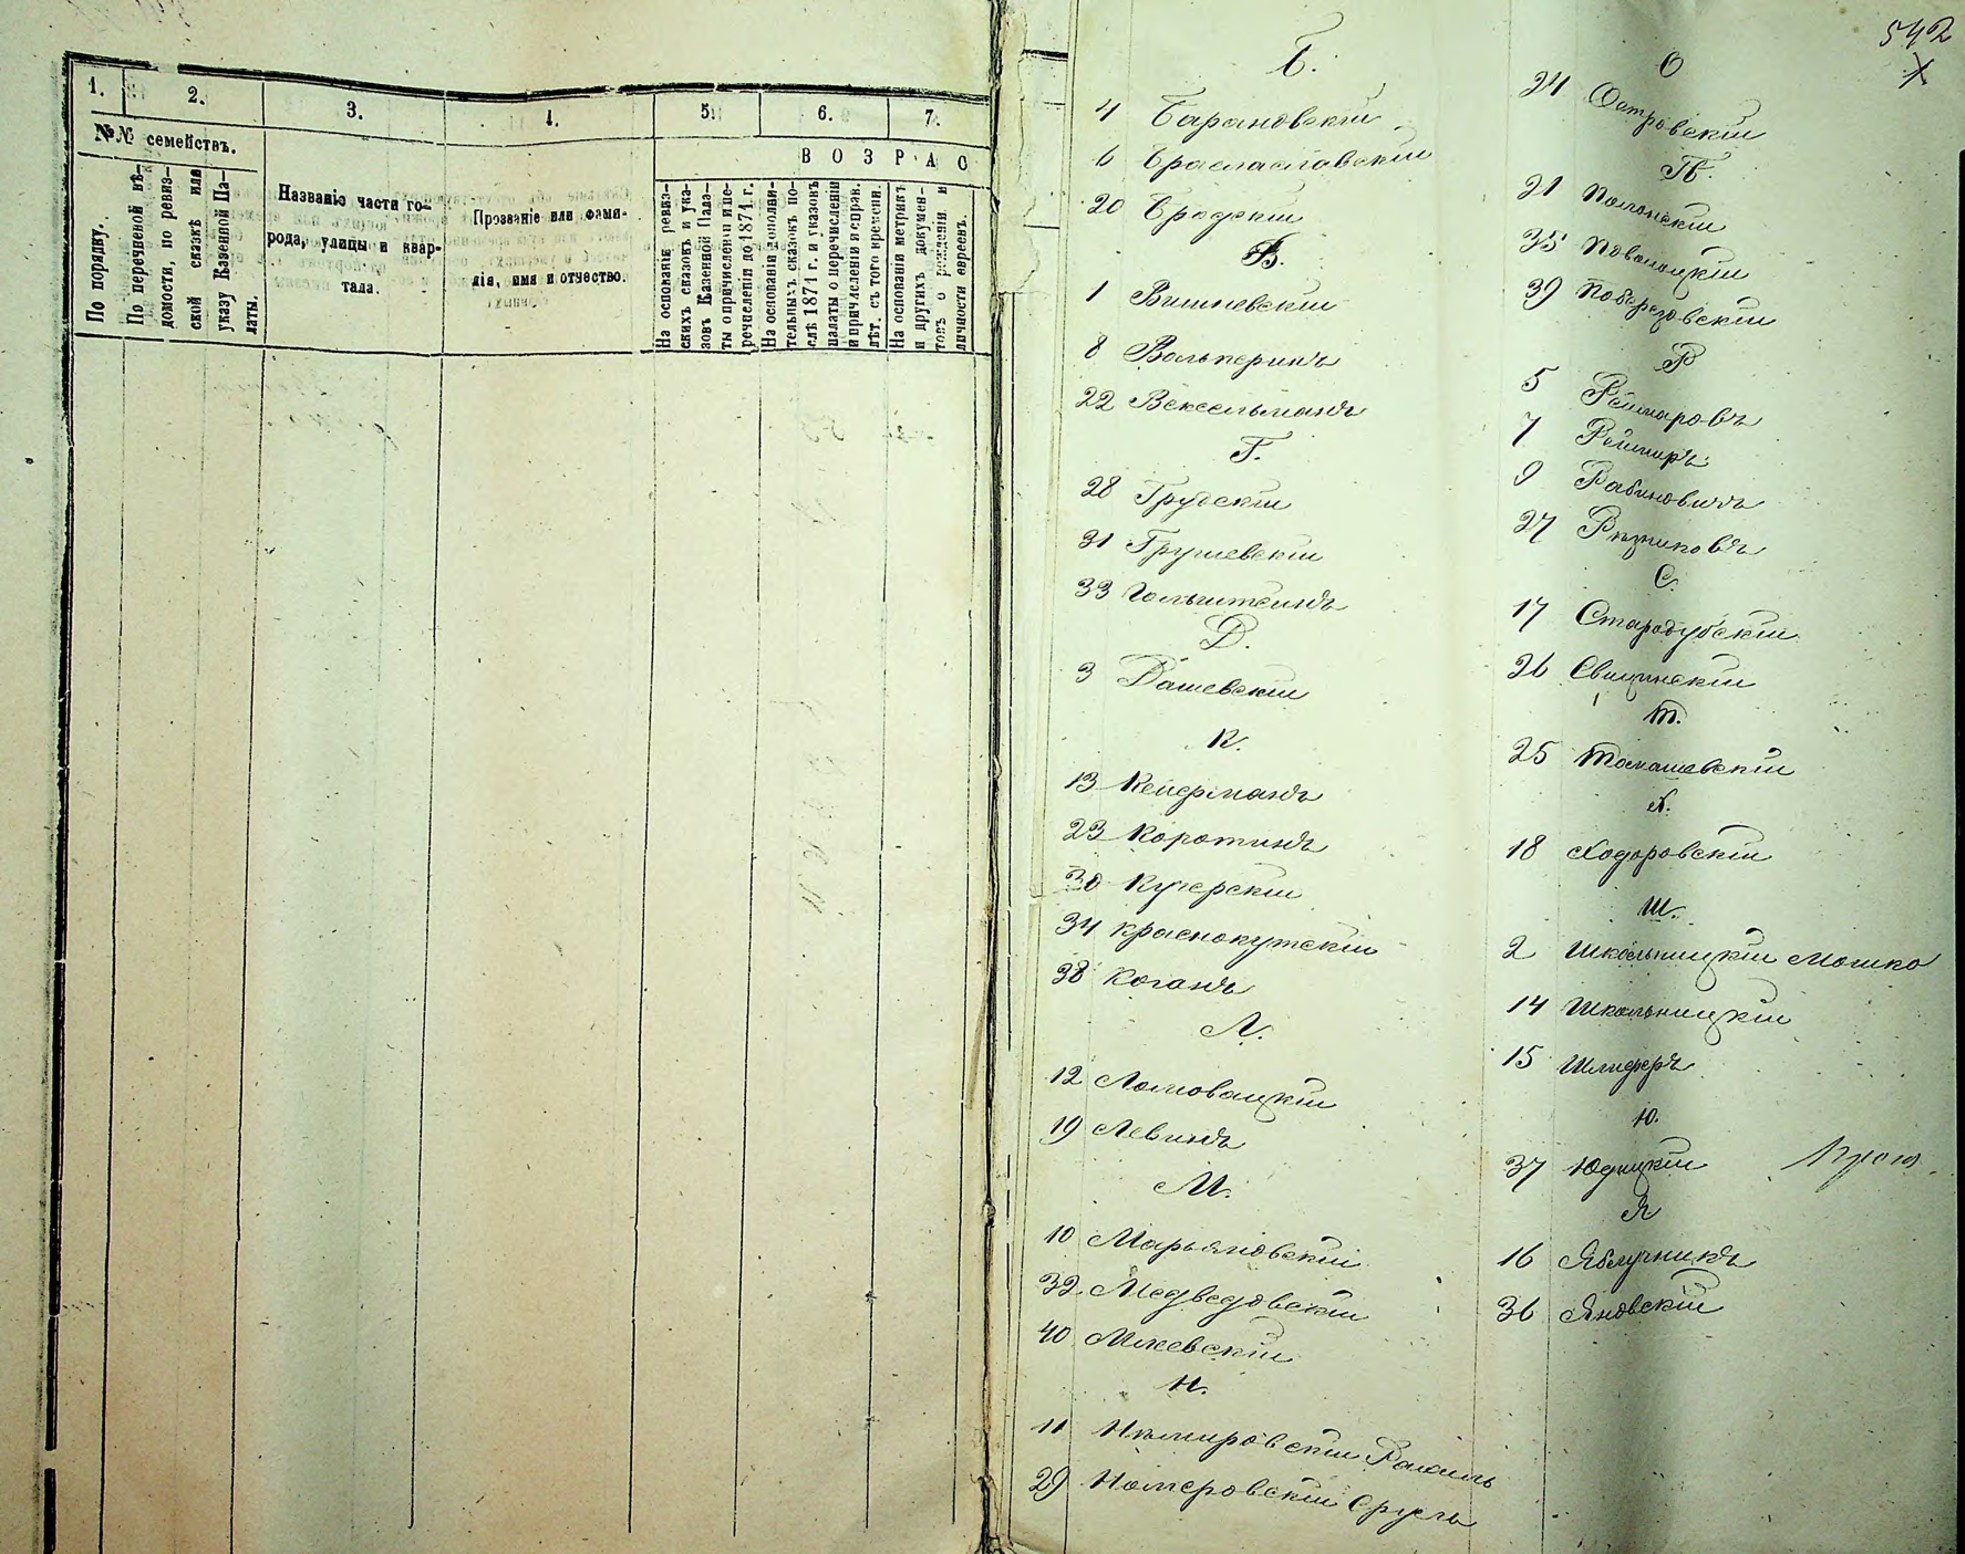 1.
2.
3.
4.
5.
6.
7.
№№ семействъ.
ВОЗРАС
По порядку.
По перечневой вѣ-
домости, по ревиз-
ской сказкѣ или
указу Казенной Па-
латы.
Названіе части го-
рода, улицы и квар-
тала.
Прозваніе или фами-
лія, имя и отчество.
На основаніи ревиз-
скихъ сказокъ и ука-
зовъ Казенной Пала-
ты о причисленіи и пе-
речисленіи до 1874 г.
На основаніи дополни-
тельныхъ сказокъ по-
слѣ 1874 г. и указовъ
палаты о перечисленіи
и причисленіи и справ.
лѣт. съ того времени.
На основаніи метрикъ
и другихъ докумен-
товъ о рожденіи и
личности евреевъ.
542
Б.
4 Барановскій
6 Браславскій
20 Бродскій
В.
1 Вишневскій
8 Вольперинъ
22 Вексельманъ
Г.
28 Грудскій
31 Грушевскій
33 Гольштейнъ
Д.
3 Дашевскій
К.
13 Кейерманъ
23 Коротинъ
30 Кучерскій
34 Краснокутскій
38 Коганъ
Л.
12 Ломовацкій
19 Левинъ
М.
10 Марьяновскій
32 Медведовскій
40 Мліевскій
Н.
11 Немировскій Рахиль
29 Немеровскій Сруль
О
24 Островскій
П.
21 Полонскій
35 Поволоцкій
39 Поберезовскій
Р
5 Реймаровъ
7 Реймеръ
9 Рабиновичъ
27 Резниковъ
С.
17 Стародубскій
26 Свицинскій
Т.
25 Томашевскій
Х.
18 Ходоровскій
Ш.
2 Школьницкій Мошко
14 Школьницкій
15 Шлиферъ
Ю.
37 Юдицкій
Я
16 Яблучникъ
36 Яновскій